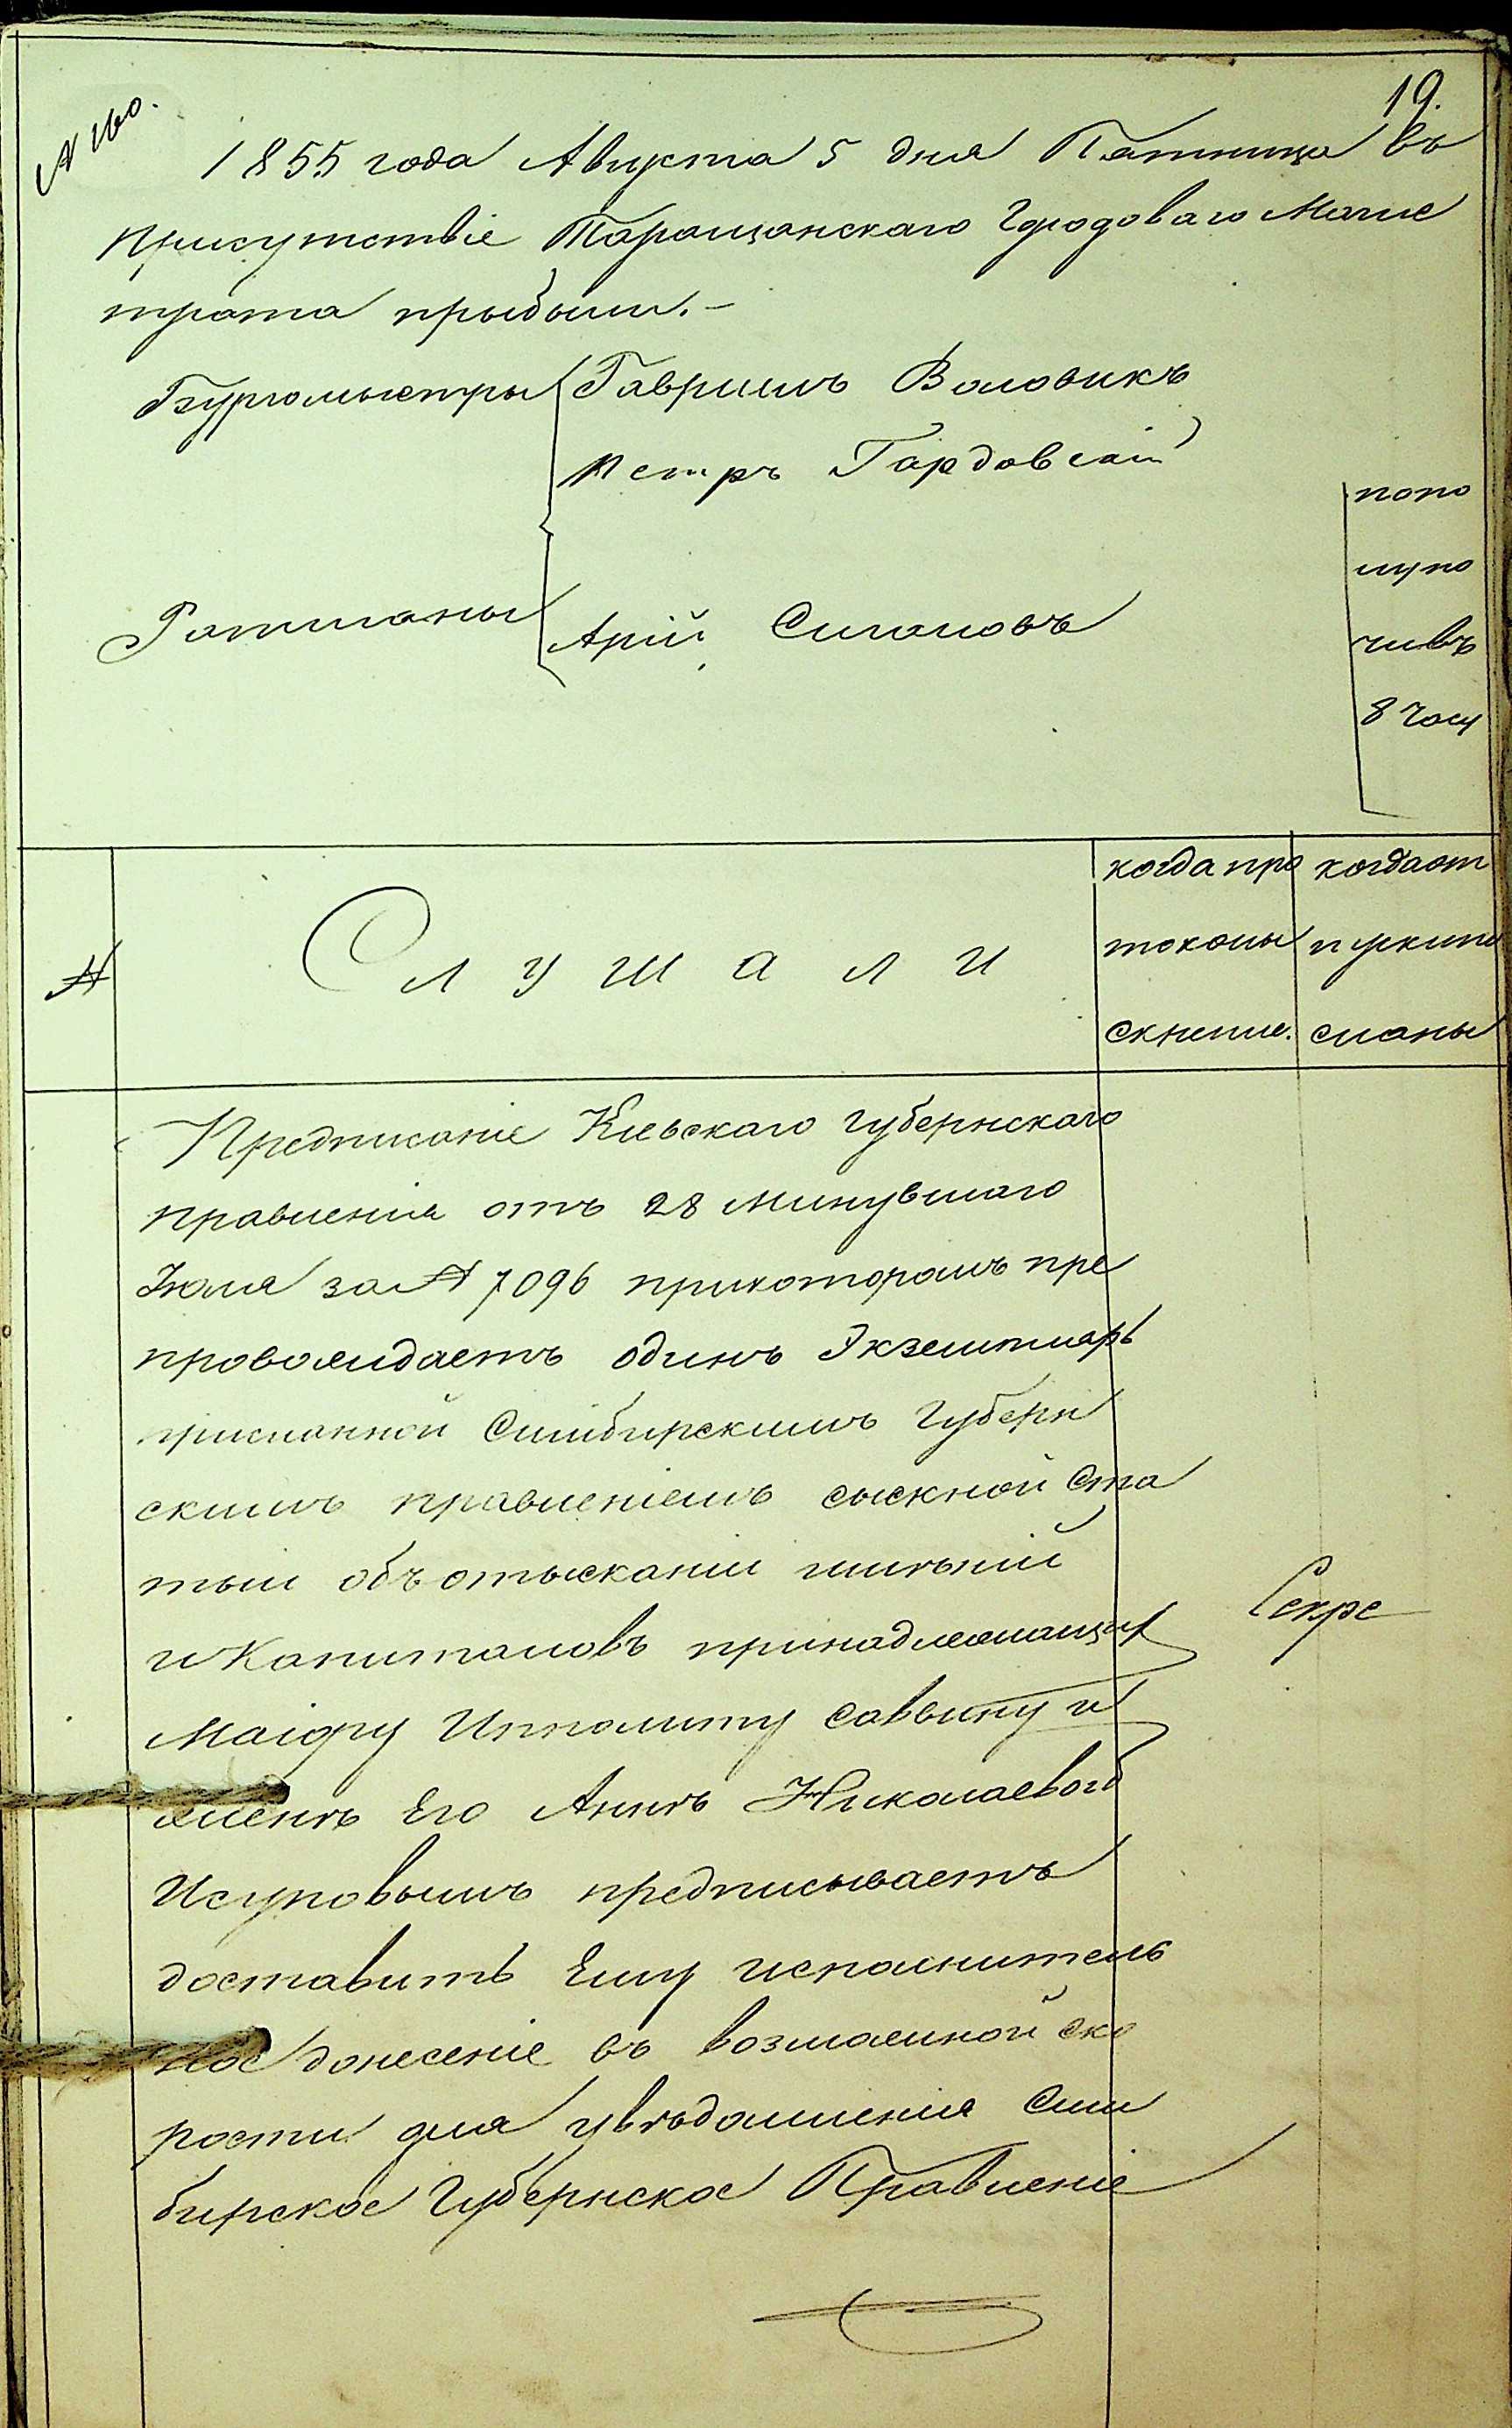 19.
№ 160.
1855 года Августа 5 дня Пятница въ
присутствіе Таращанскаго Городоваго Магис
трата прыбыли.-
Бургомыстры Гаврилъ Воловикъ
Петръ Гардовскій
Ратманы Арій
попо
лупо
чивъ
8 часу
№
Слушали
когда про
токолы
когда от
Предписаніе Кіевскаго губернскаго
правленія отъ 28 минувшаго
Іюля за № 7096 прикоторомъ пре
провождаетъ одинъ Экземпляръ
присланной Симбирскимъ Губерн
скимъ правленіемъ сыскной ста
тьи объ отысканіи имѣній
и Капиталовъ принадлежащих
Маіору Ипполиту Саввину и
женѣ Его Аннѣ Николаевой
Исуповымъ предписываетъ
доставить Ему исполнитель
ное донесеніе въ возможной ско
рости для увѣдомленія Сим
бирское Губернское Правленіе
Секре